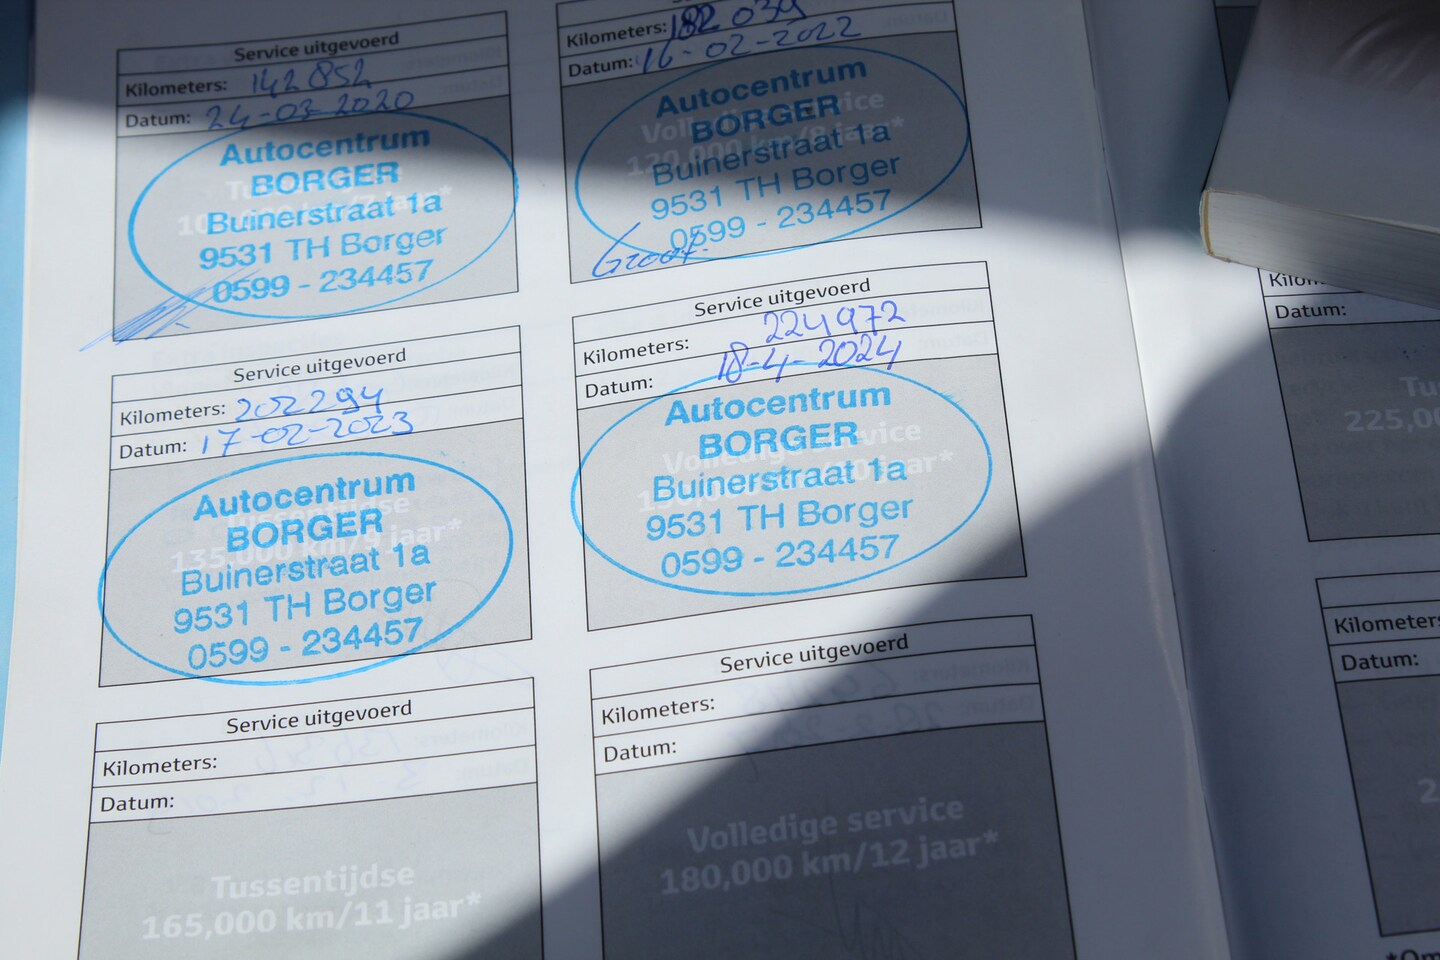 Service uitgevoerd
Kilometers: 142852
Datum: 24-03-2020
Autocentrum
BORGER
Buinerstraat 1a
9531 TH Borger
0599 - 234457
Kilometers: 182 039
Datum: 16-02-2022
Volledige service
120,000 km/8 jaar*
Autocentrum
BORGER
Buinerstraat 1a
9531 TH Borger
0599 - 234457
Groot.
Service uitgevoerd
Kilometers: 202294
Datum: 17-02-2023
135,000 km/9 jaar*
Autocentrum
BORGER
Buinerstraat 1a
9531 TH Borger
0599 - 234457
Service uitgevoerd
Kilometers: 224972
Datum: 18-4-2024
Volledige service
Autocentrum
BORGER
Buinerstraat 1a
9531 TH Borger
0599 - 234457
Service uitgevoerd
Kilometers:
Datum:
Tussentijdse
165,000 km/11 jaar*
Service uitgevoerd
Kilometers:
Datum:
Volledige service
180,000 km/12 jaar*
Datum:
Kilometers:
Datum: